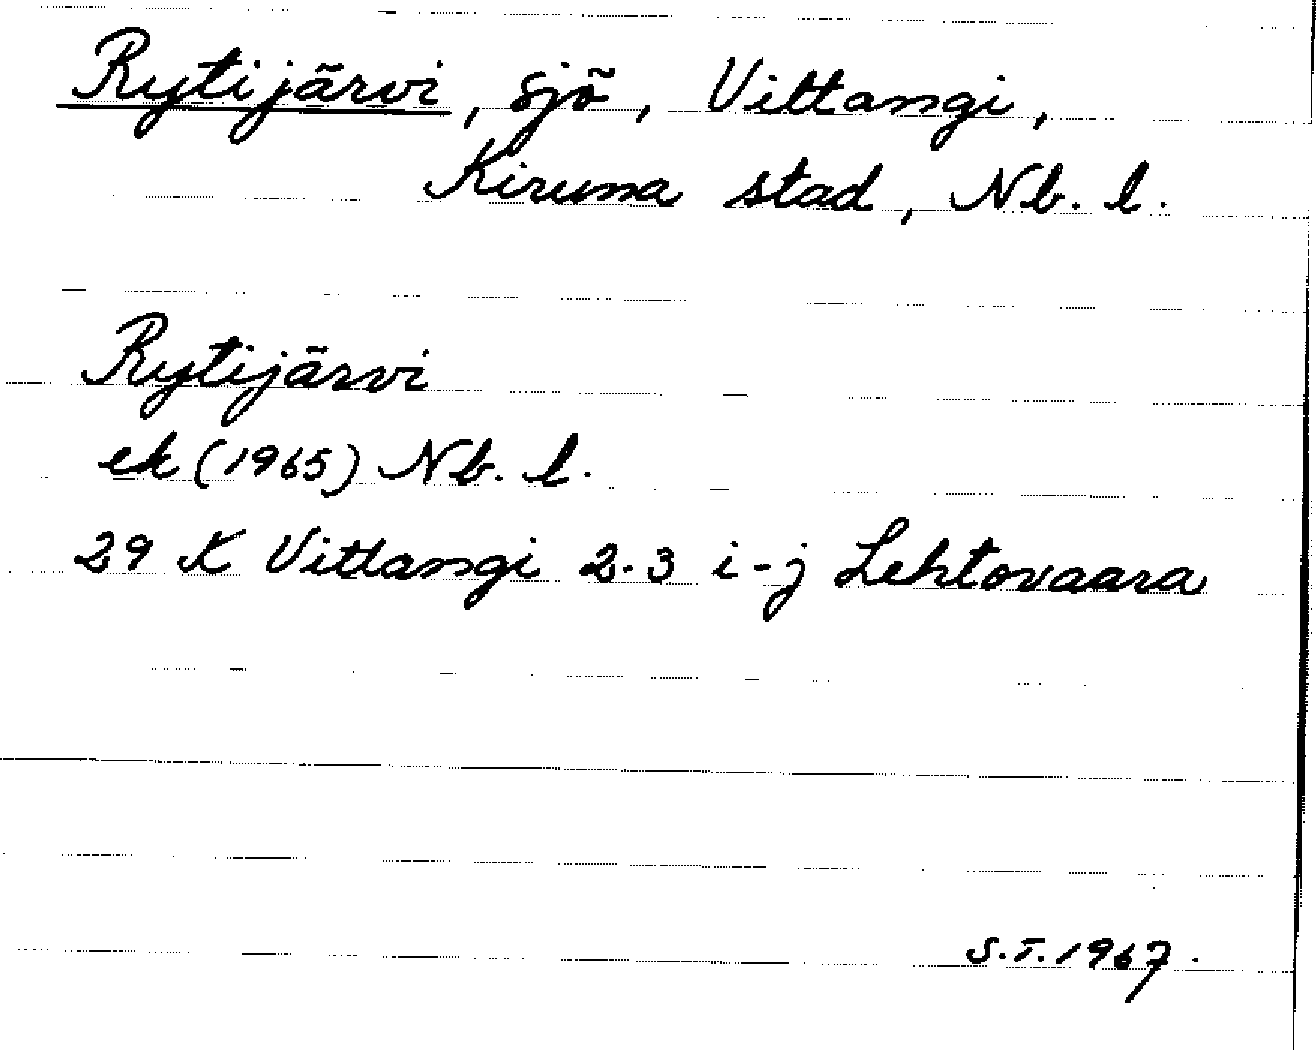 Rytijärvi, sjö, Vittangi,
Kiruna stad, Nb. l.
Rytijärvi
ek (1965) Nb. l.
29 K Vittangi 2-3 i-j Lehtovaara
S.T. 1967.